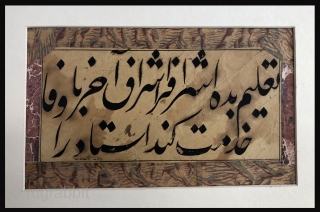 تعلیم بده اشراف را اشراف آخر با وفا
خدمت کند استاد را